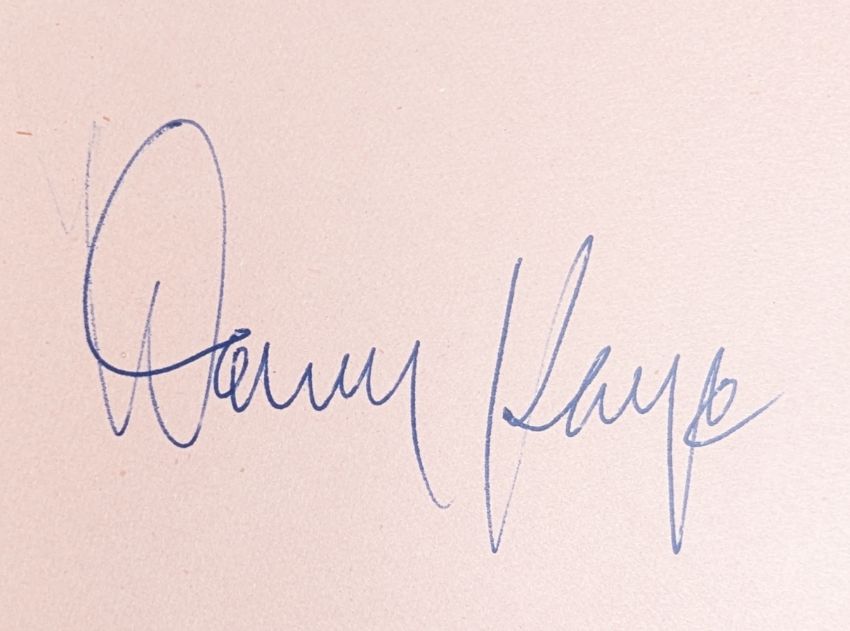 Danny Kaye